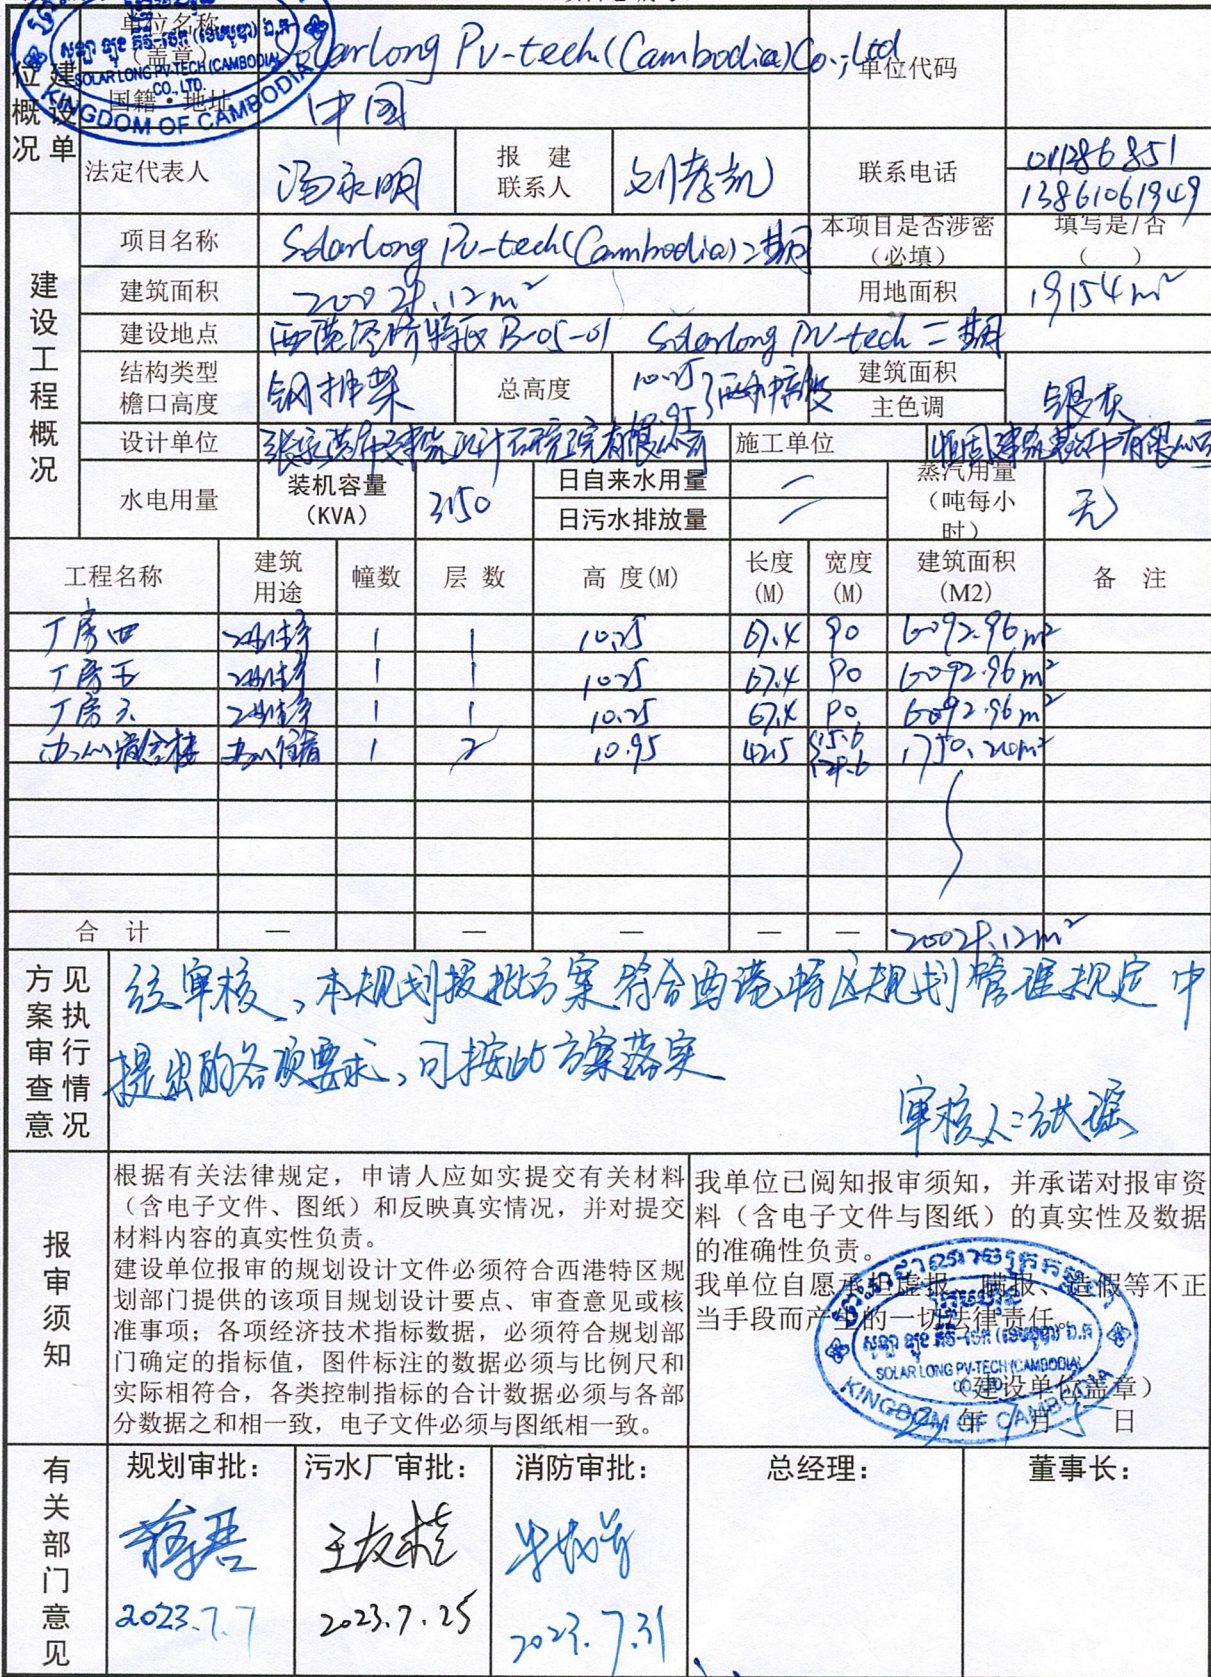 建设单位概况
单位名称（盖章）
Solarlong Pv-tech (Cambodia) Co.,Ltd
单位代码
国籍·地址
中国
SOLAR LONG PV-TECH (CAMBODIA) CO., LTD.
KINGDOM OF CAMBODIA
法定代表人
冯永明
报 建 联系人
刘孝凯
联系电话
13861061949
建设工程概况
项目名称
Solarlong Pv-tech (Cambodia) 二期
本项目是否涉密（必填）
填写是/否（ ）
建筑面积
20029.12m²
用地面积
19154m²
建设地点
西港经济特区 B-05-01 Solarlong PV-tech 二期
结构类型 檐口高度
钢排架
总高度
10.25
10.95
建筑面积
主色调
银灰
设计单位
张家港市建筑设计研究院有限公司
施工单位
水电用量
装机容量（KVA）
3150
日自来水用量
日污水排放量
蒸汽用量（吨每小时）
无
工程名称 建筑用途 幢数 层 数 高 度(M) 长度(M) 宽度(M) 建筑面积(M2) 备 注
厂房四 1 1 10.25 67.4 90 6092.96m²
厂房五 1 1 10.25 67.4 90 6092.96m²
厂房六 1 1 10.25 67.4 90 6092.96m²
办公宿舍楼 1 2 10.95 42.5 1750.24m²
合 计 — — — — — — 20029.12m²
方案审查意见执行情况
经审核，本规划报批方案符合西港特区规划管理规定中
提出的各项要求，可按此方案落实
审核人：
报审须知
根据有关法律规定，申请人应如实提交有关材料
（含电子文件、图纸）和反映真实情况，并对提交
材料内容的真实性负责。
建设单位报审的规划设计文件必须符合西港特区规
划部门提供的该项目规划设计要点、审查意见或核
准事项；各项经济技术指标数据，必须符合规划部
门确定的指标值，图件标注的数据必须与比例尺和
实际相符合，各类控制指标的合计数据必须与各部
分数据之和相一致，电子文件必须与图纸相一致。
我单位已阅知报审须知，并承诺对报审资
料（含电子文件与图纸）的真实性及数据
的准确性负责。
我单位自愿承担虚报、瞒报、造假等不正
当手段而产生的一切法律责任。
SOLAR LONG PV-TECH (CAMBODIA) CO., LTD.
KINGDOM OF CAMBODIA
（建设单位盖章）
23 年 7 月 5 日
有关部门意见
规划审批：
2023.7.7
污水厂审批：
王友桂
2023.7.25
消防审批：
2023.7.31
总经理：
董事长：